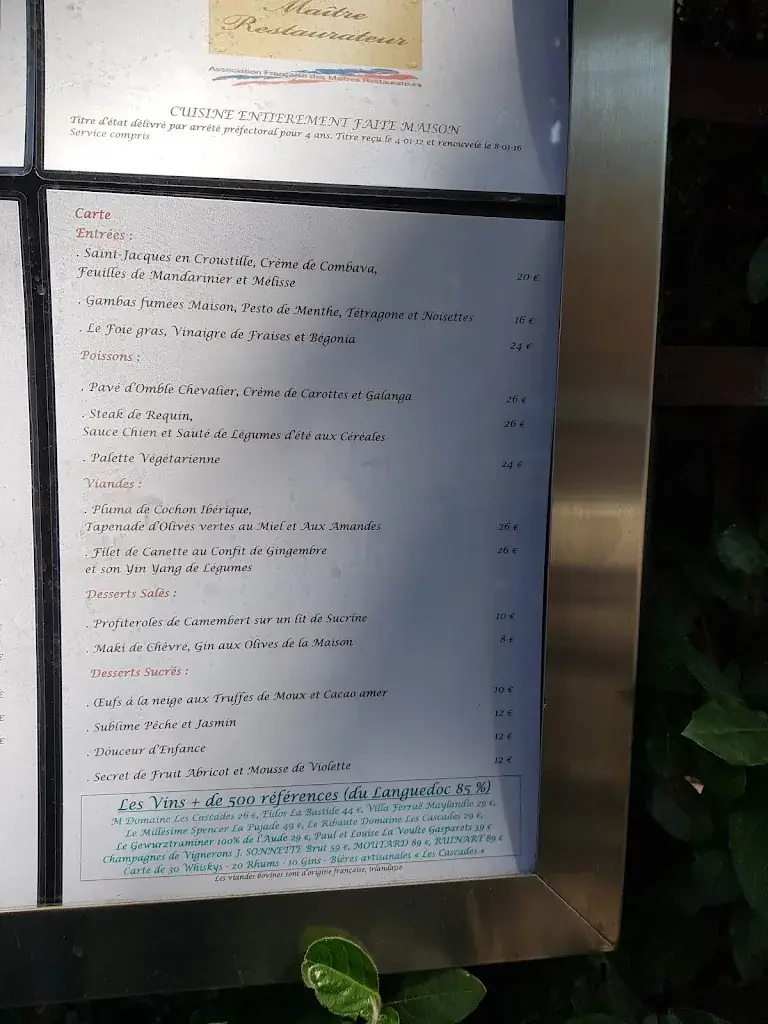 Maître
Restaurateur
Association Française des Maîtres Restaurateurs
CUISINE ENTIEREMENT FAITE MAISON
Titre d'état délivré par arrêté préfectoral pour 4 ans. Titre reçu le 4-01-12 et renouvelé le 8-01-16
Service compris
Carte
Entrées :
. Saint-Jacques en Croustille, Crème de Combava,
Feuilles de Mandarinier et Mélisse 20 €
. Gambas fumées Maison, Pesto de Menthe, Tétragone et Noisettes 16 €
. Le Foie gras, Vinaigre de Fraises et Bégonia 24 €
Poissons :
. Pavé d'Omble Chevalier, Crème de Carottes et Galanga 26 €
. Steak de Requin, 26 €
Sauce Chien et Sauté de Légumes d'été aux Céréales
. Palette Végétarienne 24 €
Viandes :
. Pluma de Cochon Ibérique,
Tapenade d'Olives vertes au Miel et Aux Amandes 26 €
. Filet de Canette au Confit de Gingembre 26 €
et son Yin Yang de Légumes
Desserts Salés :
. Profiteroles de Camembert sur un lit de Sucrine 10 €
. Maki de Chèvre, Gin aux Olives de la Maison 8 €
Desserts Sucrés :
. Œufs à la neige aux Truffes de Moux et Cacao amer 10 €
. Sublime Pêche et Jasmin 12 €
. Douceur d'Enfance 12 €
. Secret de Fruit Abricot et Mousse de Violette 12 €
Les Vins + de 500 références (du Languedoc 85 %)
M Domaine Les Cascades 26 €, Eidos La Bastide 44 €, Villa Ferraë Maylandie 29 €,
Le Millésime Spencer La Pujade 49 €, Le Ribaute Domaine Les Cascades 29 €,
Le Gewurztraminer 100% de l'Aude 29 €, Paul et Louise La Voulte Gasparets 39 €
Champagnes de Vignerons J. SONNETTE Brut 59 €, MOUTARD 89 €, RUINART 89 €
Carte de 30 Whiskys - 20 Rhums - 10 Gins - Bières artisanales « Les Cascades »
Les viandes bovines sont d'origine française, irlandaise